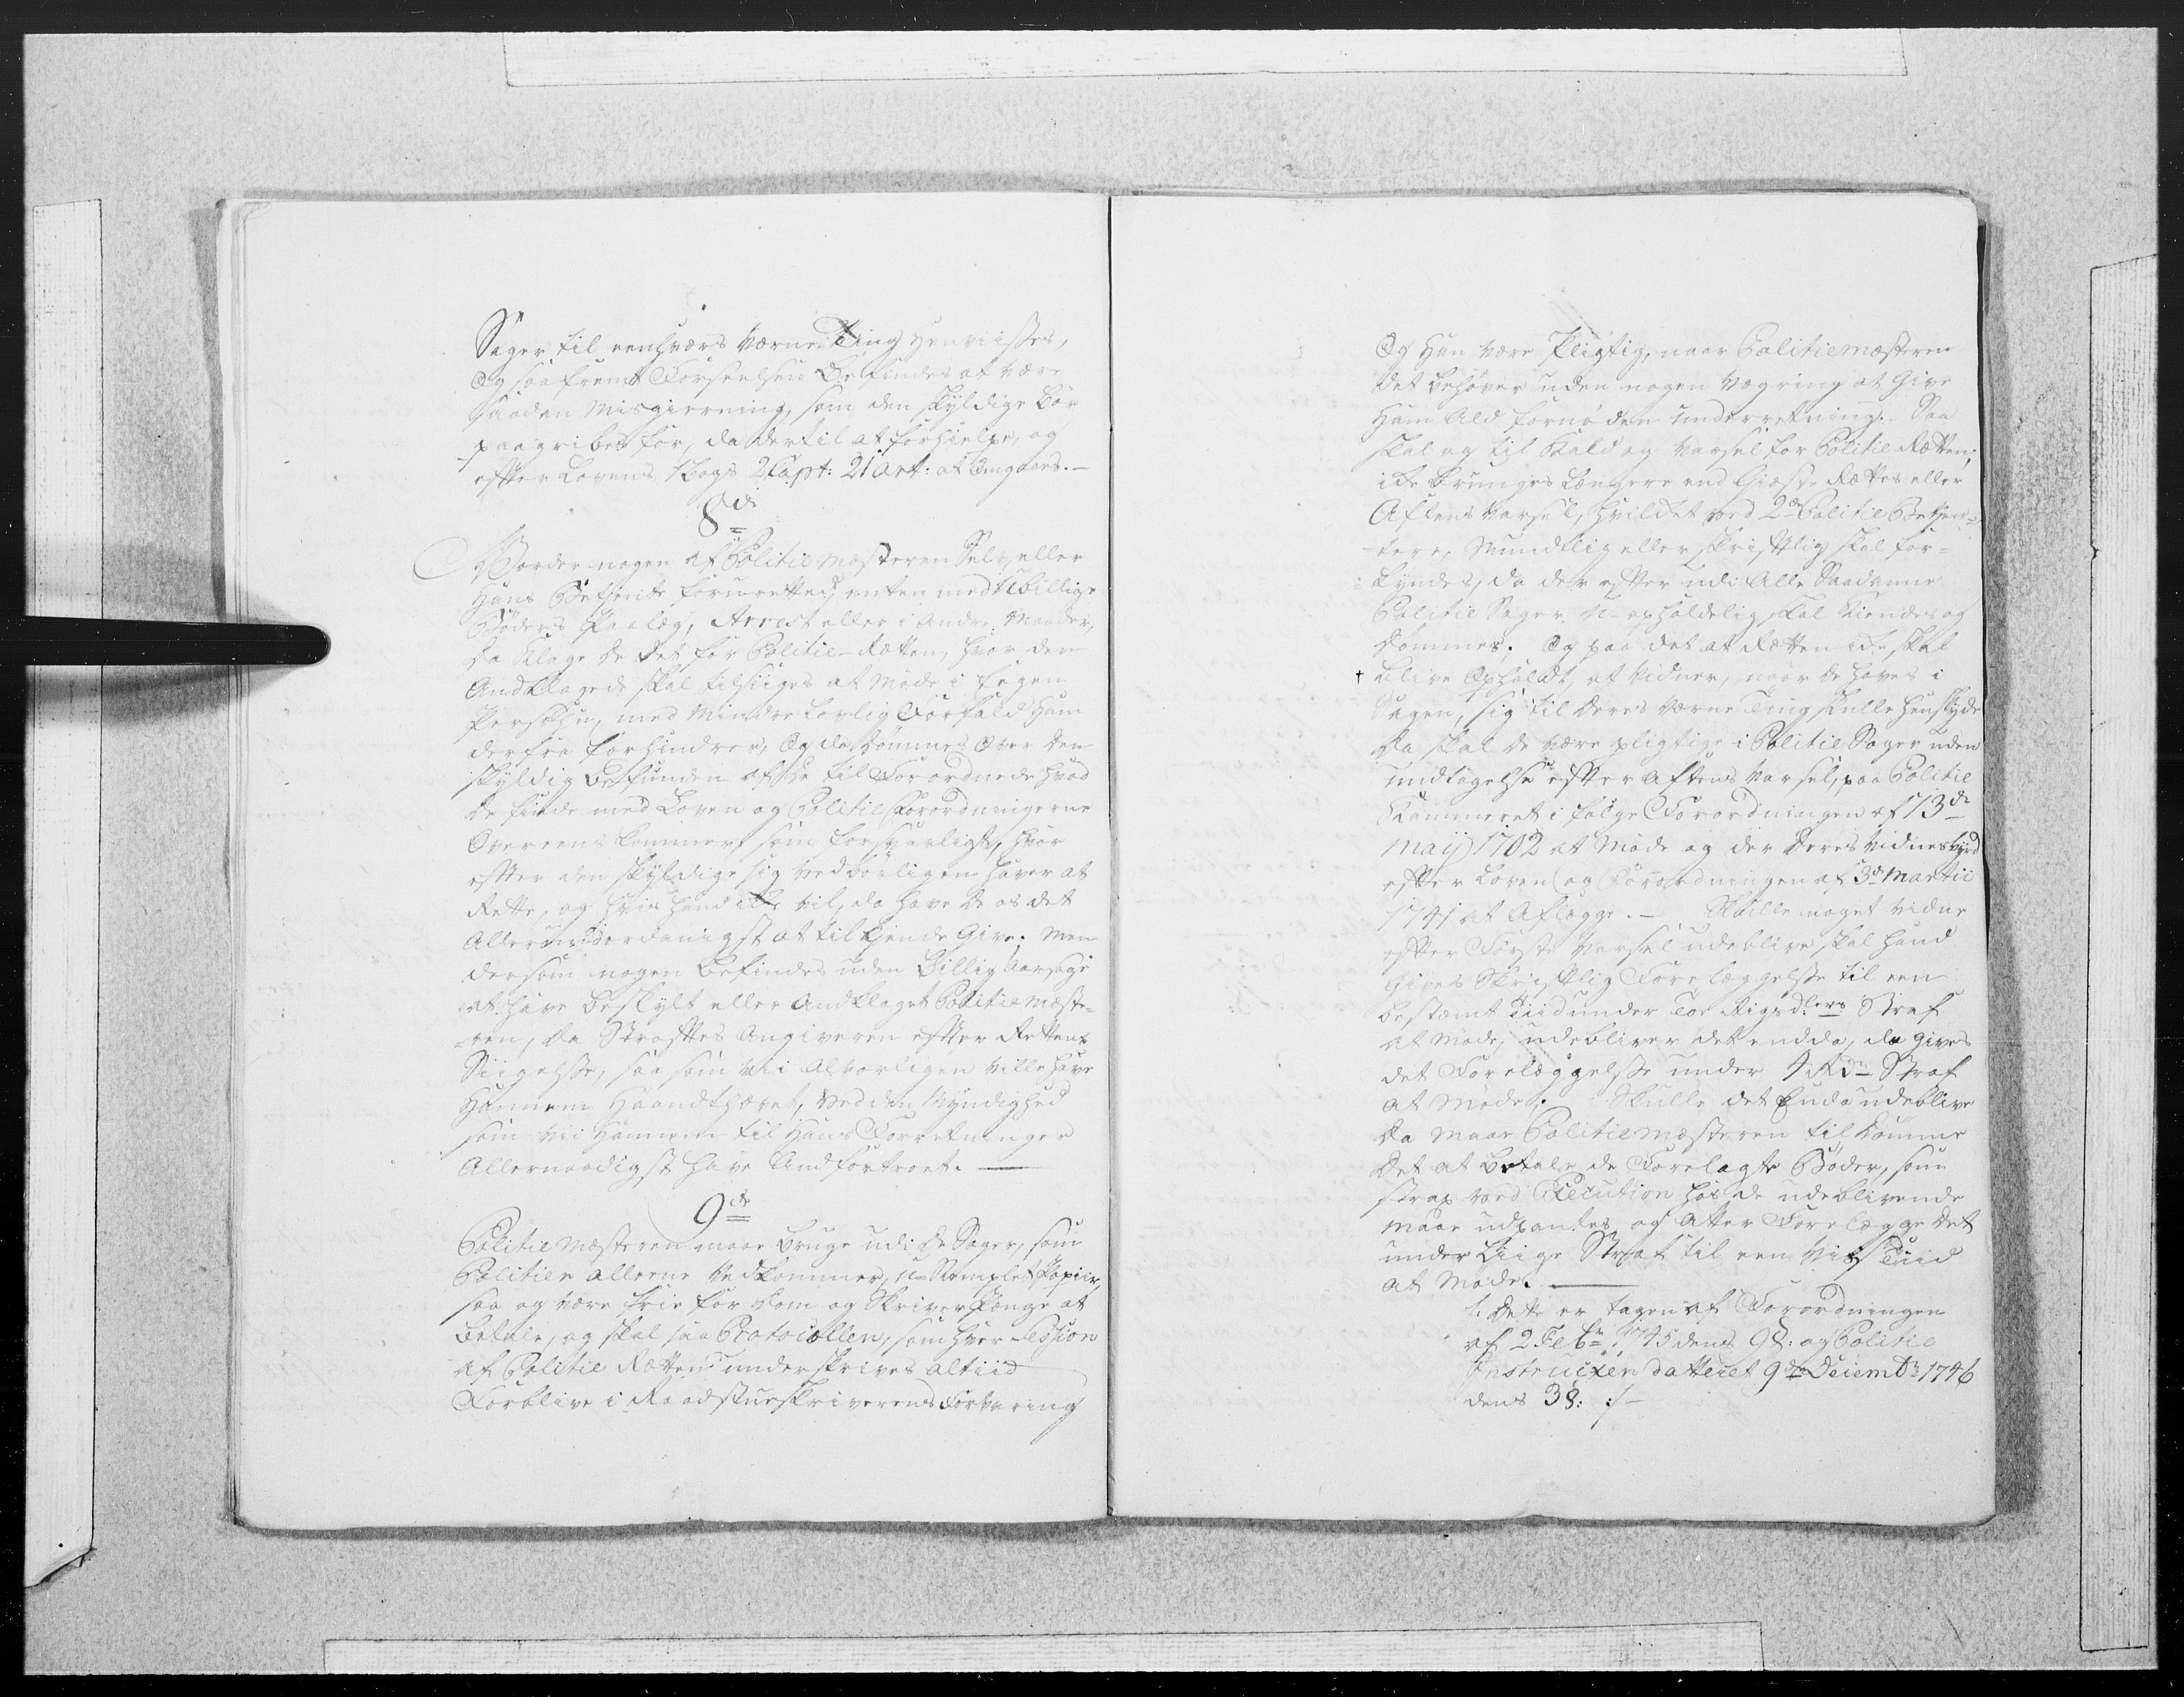 Sager til eenhvers Værne Ting henviises,
Og saafremt Forseelsen Befindes at være
saadan Misgierning, som den skyldige bør
paagribes for, da dertil at forhielpe, og
efter Lovens 1 Bogs 2 Capt: 21 Art: at omgaaes.-
8de
Vorder nogen af Politiemesteren Selv, eller
Hans Betiente forurettet, enten med Ubillige
Bøders Paalæg, Arrest eller i Andre Maader,
da Klage de det for Politie-Retten, hvor den
Andklagede skal tilsiiges at Møde i Egen
Persohn, med mindre Lovlig Forfald ham
derfra forhindrer, Og da Dømmes Over den
skyldig Befunden af de til Forordnede hvad
de finde med Loven og Politie Forordningerne
Overeens kommer, som forsvarligt, hvor
efter den skyldige sig vedbørligen haver at
Rette, og hvis hand ikke vil, da have de os det
Allerunderdanigst at tilkiende Give; Men
dersom nogen befindes uden Billig Aarsage
at have beskylt eller Andklaget Politiemeste-
-ren, da Straffes Angiveren efter Rettens
Siigelse, saa som Vii Alvorligen ville have
Hannem Haandthævet, ved den Myndighed
som Vii Hannem til Hans Forretninger
Allernaadigst have Andfortroet. —
9de
Politiemesteren maae bruge udi de Sager, som
Politien allene Vedkommer, U-Stemplet Papiir,
saa og være frie for Dom og Skriver Penge at
betale, og skal saa Protocollen, som hver Session
af Politie Retten underskrives altiid
Forblive i Raadstueskriverens Forvaring
Og Han være Pligtig, naar Politiemesteren
det behøver uden nogen Vægring at Give
Ham Ald fornøden Underretning. Saa
skal og til Kald og Varsel for Politie Retten,
icke bruges Længere end Giæste Rettes eller
Aftens Varsel, hvilket ved 2de Politie Betien-
-tere, Mundtlig eller skriftlig skal for-
-kyndes, da der efter udi Alle Saadanne
Politie Sager U-opholdelig skal Kiendes og
Dømmes. Og paa det at Retten icke skal
† blive Opholdt, at Vidner, naar de haves i
Sagen, sig til deres Værne Ting skulle henskyde
da skal de være pligtige i Politie Sager uden
Undtagelse efter Aftens Varsel, paa Politie
Kammeret i følge Forordningen af 13de
Maij 1702 at Møde og der deres Vidnesbyrd
efter Loven og Forordningen af 3de Martii
1741 at Aflægge. — Skulle noget Vidne
efter Første Varsel udeblive skal hand
gives Skriftlig Forelæggelse til een
bestemt Tiid under Toe Rigsdlers Straf
at Møde, udebliver det endda, da gives
det Forelæggelse under 4 Rdrs Straf
at Møde; Skulle det Enda udeblive
da maae Politiemesteren tildømme
det at betale de Forelagte Bøder, som
strax ved Execution hos de udeblivende
maae udpantes, og Atter Forelægge det
under Liige Straf til een Vis Tiid
at Møde. —
/: Dette er tagen af Forordningen
af 2 Febr. 1745 dens 9 §: og Politie
Instruxen datteret 9de Decembr. 1746
dens 3 §: :/ —